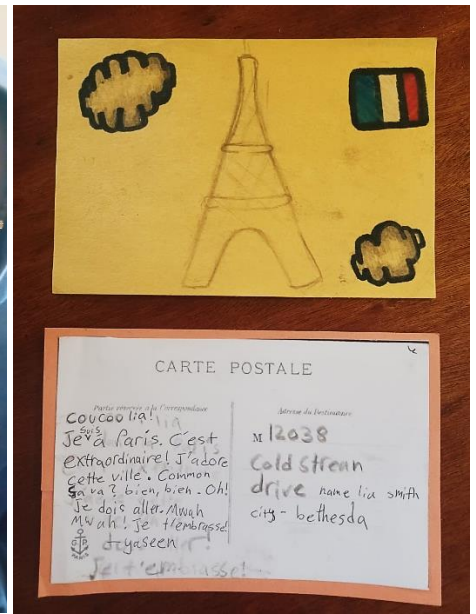 CARTE POSTALE
Partie réservée à la Correspondance
Adresse du Destinataire
coucoo lia!
Je suis à Paris. C'est
extraordinaire! J'adore
cette ville. Common
ça va? bien, bien. Oh!
Je dois aller. Mwah
Mwah! Je t'embrasse
yaseen
Je t'embrasse!
M 12038
Cold strean
drive name lia smith
city - bethesda